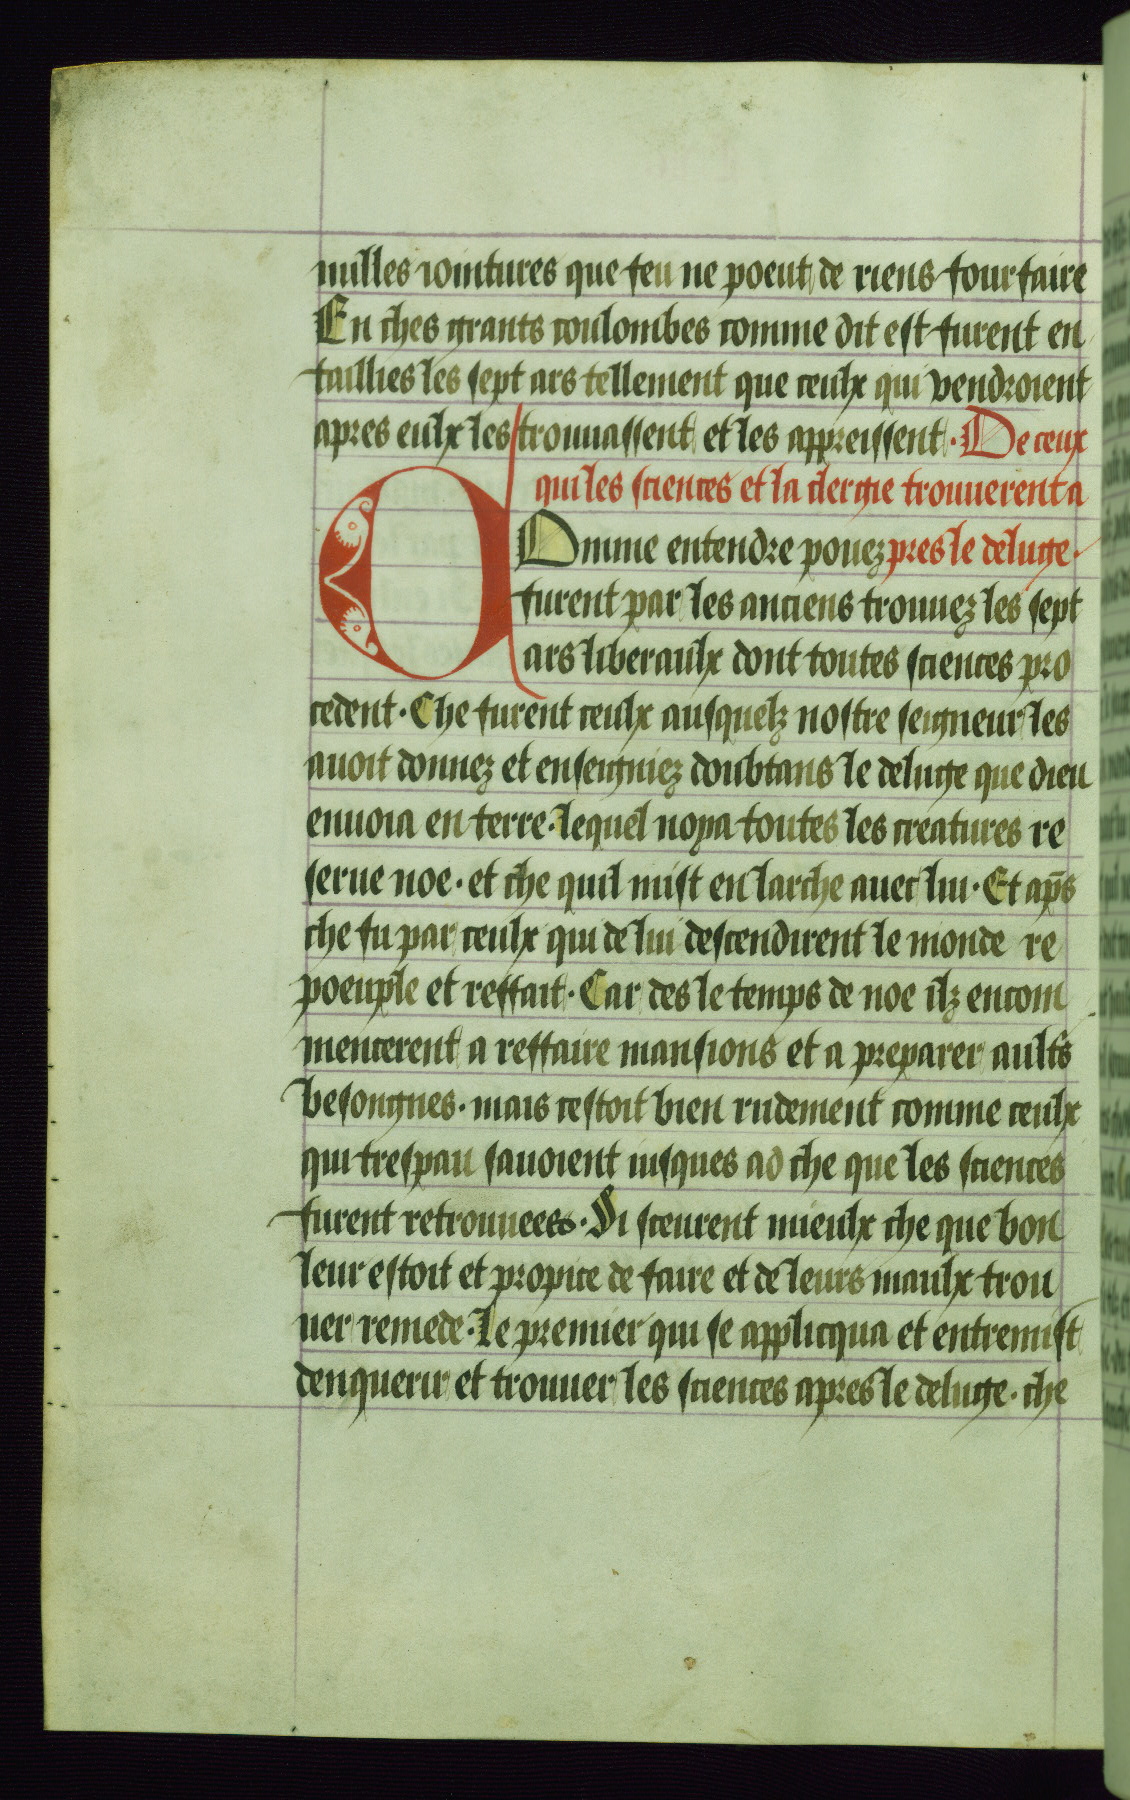 nulles iointures que feu ne poeut de riens fourfaire
En ches grants coulombes comme dit est furent en
taillies les sept ars tellement que ceulx qui vendroient
apres eulx les trouuassent et les appreissent · De ceux
qui les sciences et la clergie trouuerent a
COmme entendre pouez pres le deluge ·
furent par les anciens trouuez les sept
ars liberaulx dont toutes sciences pro
cedent · Che furent ceulx ausquelz nostre seigneur les
auoit donnez et enseigniez doubtans le deluge que dieu
enuoia en terre · lequel noya toutes les creatures re
serue noe · et che quil mist en larche auec lui · Et ap̃s
che fu par ceulx qui de lui descendirent le monde re
poeuple et reffait · Car des le temps de noe ilz encom
mencerent a reffaire mansions et a preparer ault̃s
besongnes · mais cestoit bien rudement comme ceulx
qui trespau sauoient iusques ad che que les sciences
furent retrouuees · Si sceurent mieulx che que bon
leur estoit et propice de faire et de leurs maulx trou
uer remede · Le premier qui se applicqua et entremist
denquerir et trouuer les sciences apres le deluge · che